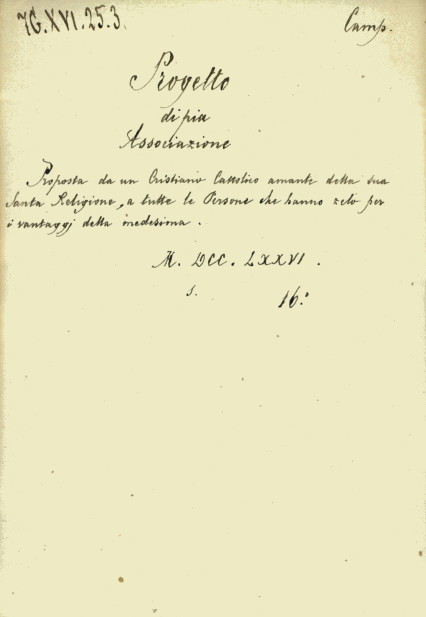 7G.XVI.25.3.
Camp.
Progetto
di pia
Associazione
Proposta da un Cristiano Cattolico amante della sua
Santa Religione, a tutte le Persone che hanno zelo per
i vantaggj della medesima.
M. DCC. LXXVI.
s. 16.°